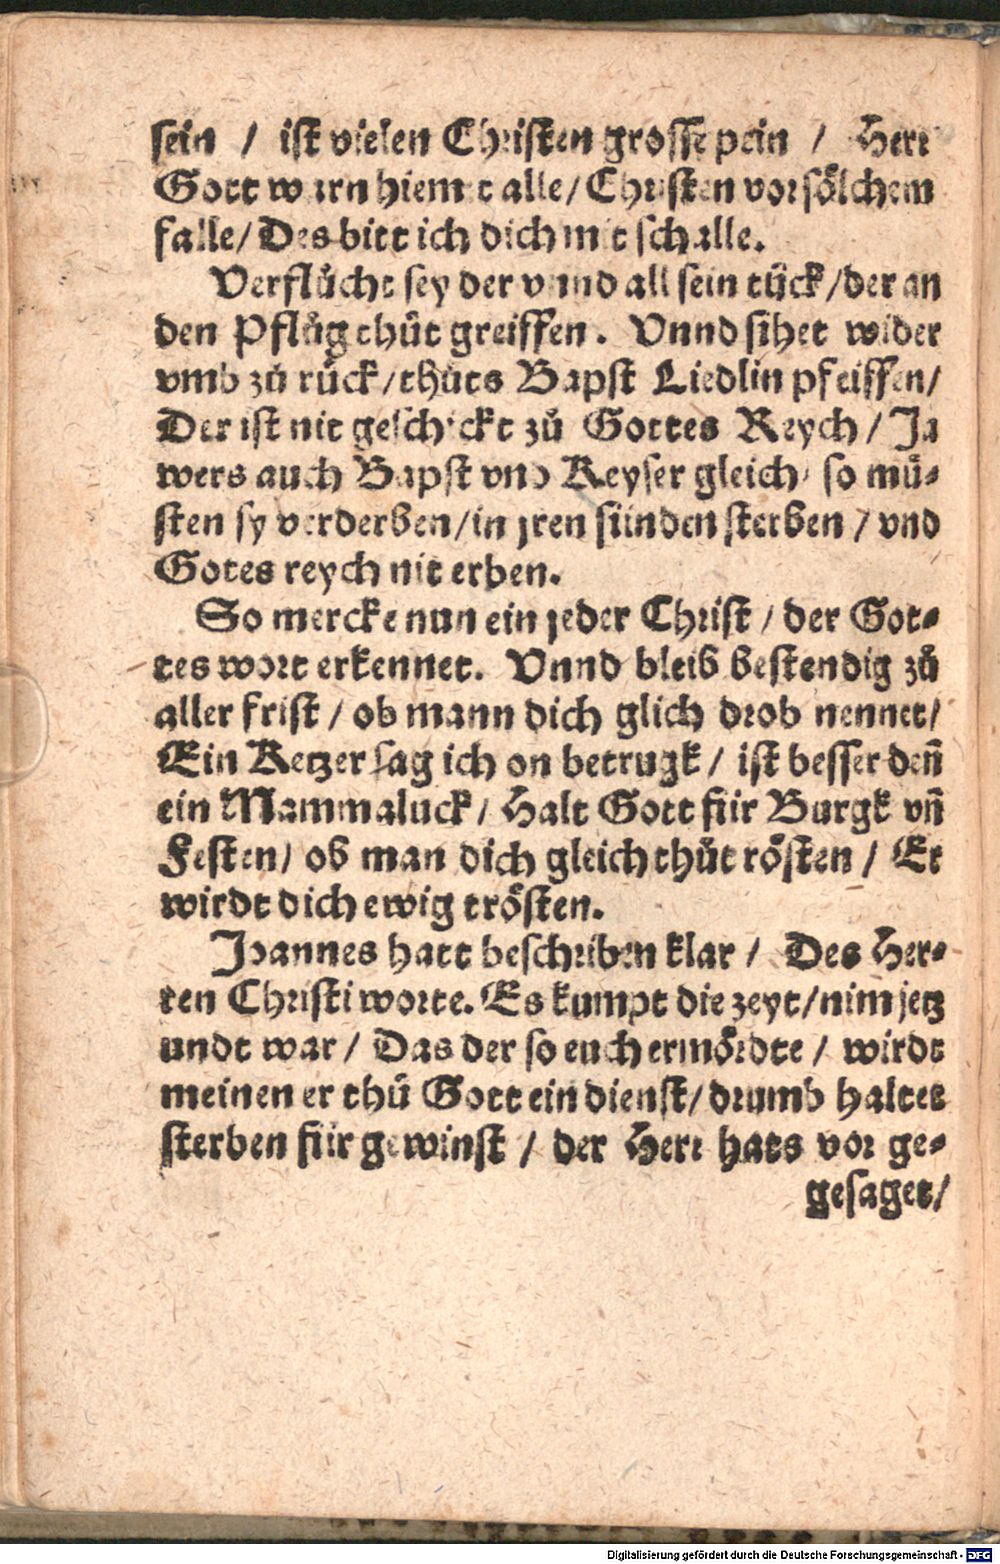 sein / ist vielen Christen grosse pein / Herr
Gott warn hiemit alle/ Christen vor sölchem
falle/ Des bitt ich dich mit schalle.
Verflůcht sey der vnnd all sein tück/der an
den Pflůg thůt greiffen. Vnnd sihet wider
vmb zů rück/thůts Bapst Liedlin pfeiffen/
Der ist nit geschickt zů Gottes Reych/ Ja
wers auch Bapst vnd Keyser gleich/ so mü⸗
sten sy verderben/in jren sünden sterben / vnd
Gotes reych nit erben.
So mercke nun ein jeder Christ / der Got⸗
tes wort erkennet. Vnnd bleib bestendig zů
aller frist / ob mann dich glich drob nennet/
Ein Ketzer sag ich on betrugk/ ist besser deñ
ein Mammaluck/ Halt Gott für Burgk vñ
Festen/ ob man dich gleich thůt rösten / Er
wirdt dich ewig trösten.
Joannes hatt beschriben klar / Des Her⸗
ren Christi worte. Es kumpt die zeyt/nim jetz
undt war/ Das der so euch ermördte / wirdt
meinen er thů Gott ein dienst/drumb haltet
sterben für gewinst / der Herr hats vor ge⸗
gesaget/
Digitalisierung gefördert durch die Deutsche Forschungsgemeinschaft - DFG